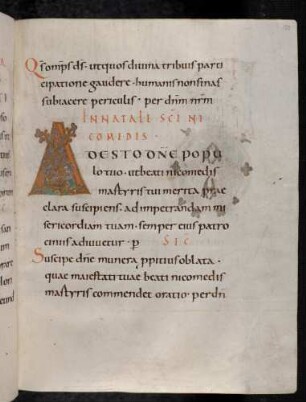 Qs omps ds. ut quos divina tribuis parti
cipatione gaudere. humanis non sinas
subiacere periculis. per dnm nrm
IN NATALI SCI NI
COMIDIS.
ADESTO DNE POPU
lo tuo. ut beati nicomedis
martyris tui merita prae
clara suscipiens. ad impetrandam mi
sericordiam tuam. semper eius patro
ciniis adiuvetur. p
Suscipe dne munera ppitius oblata.
quae maiestati tuae beati nicomedis
martyris commendet oratio. per dn